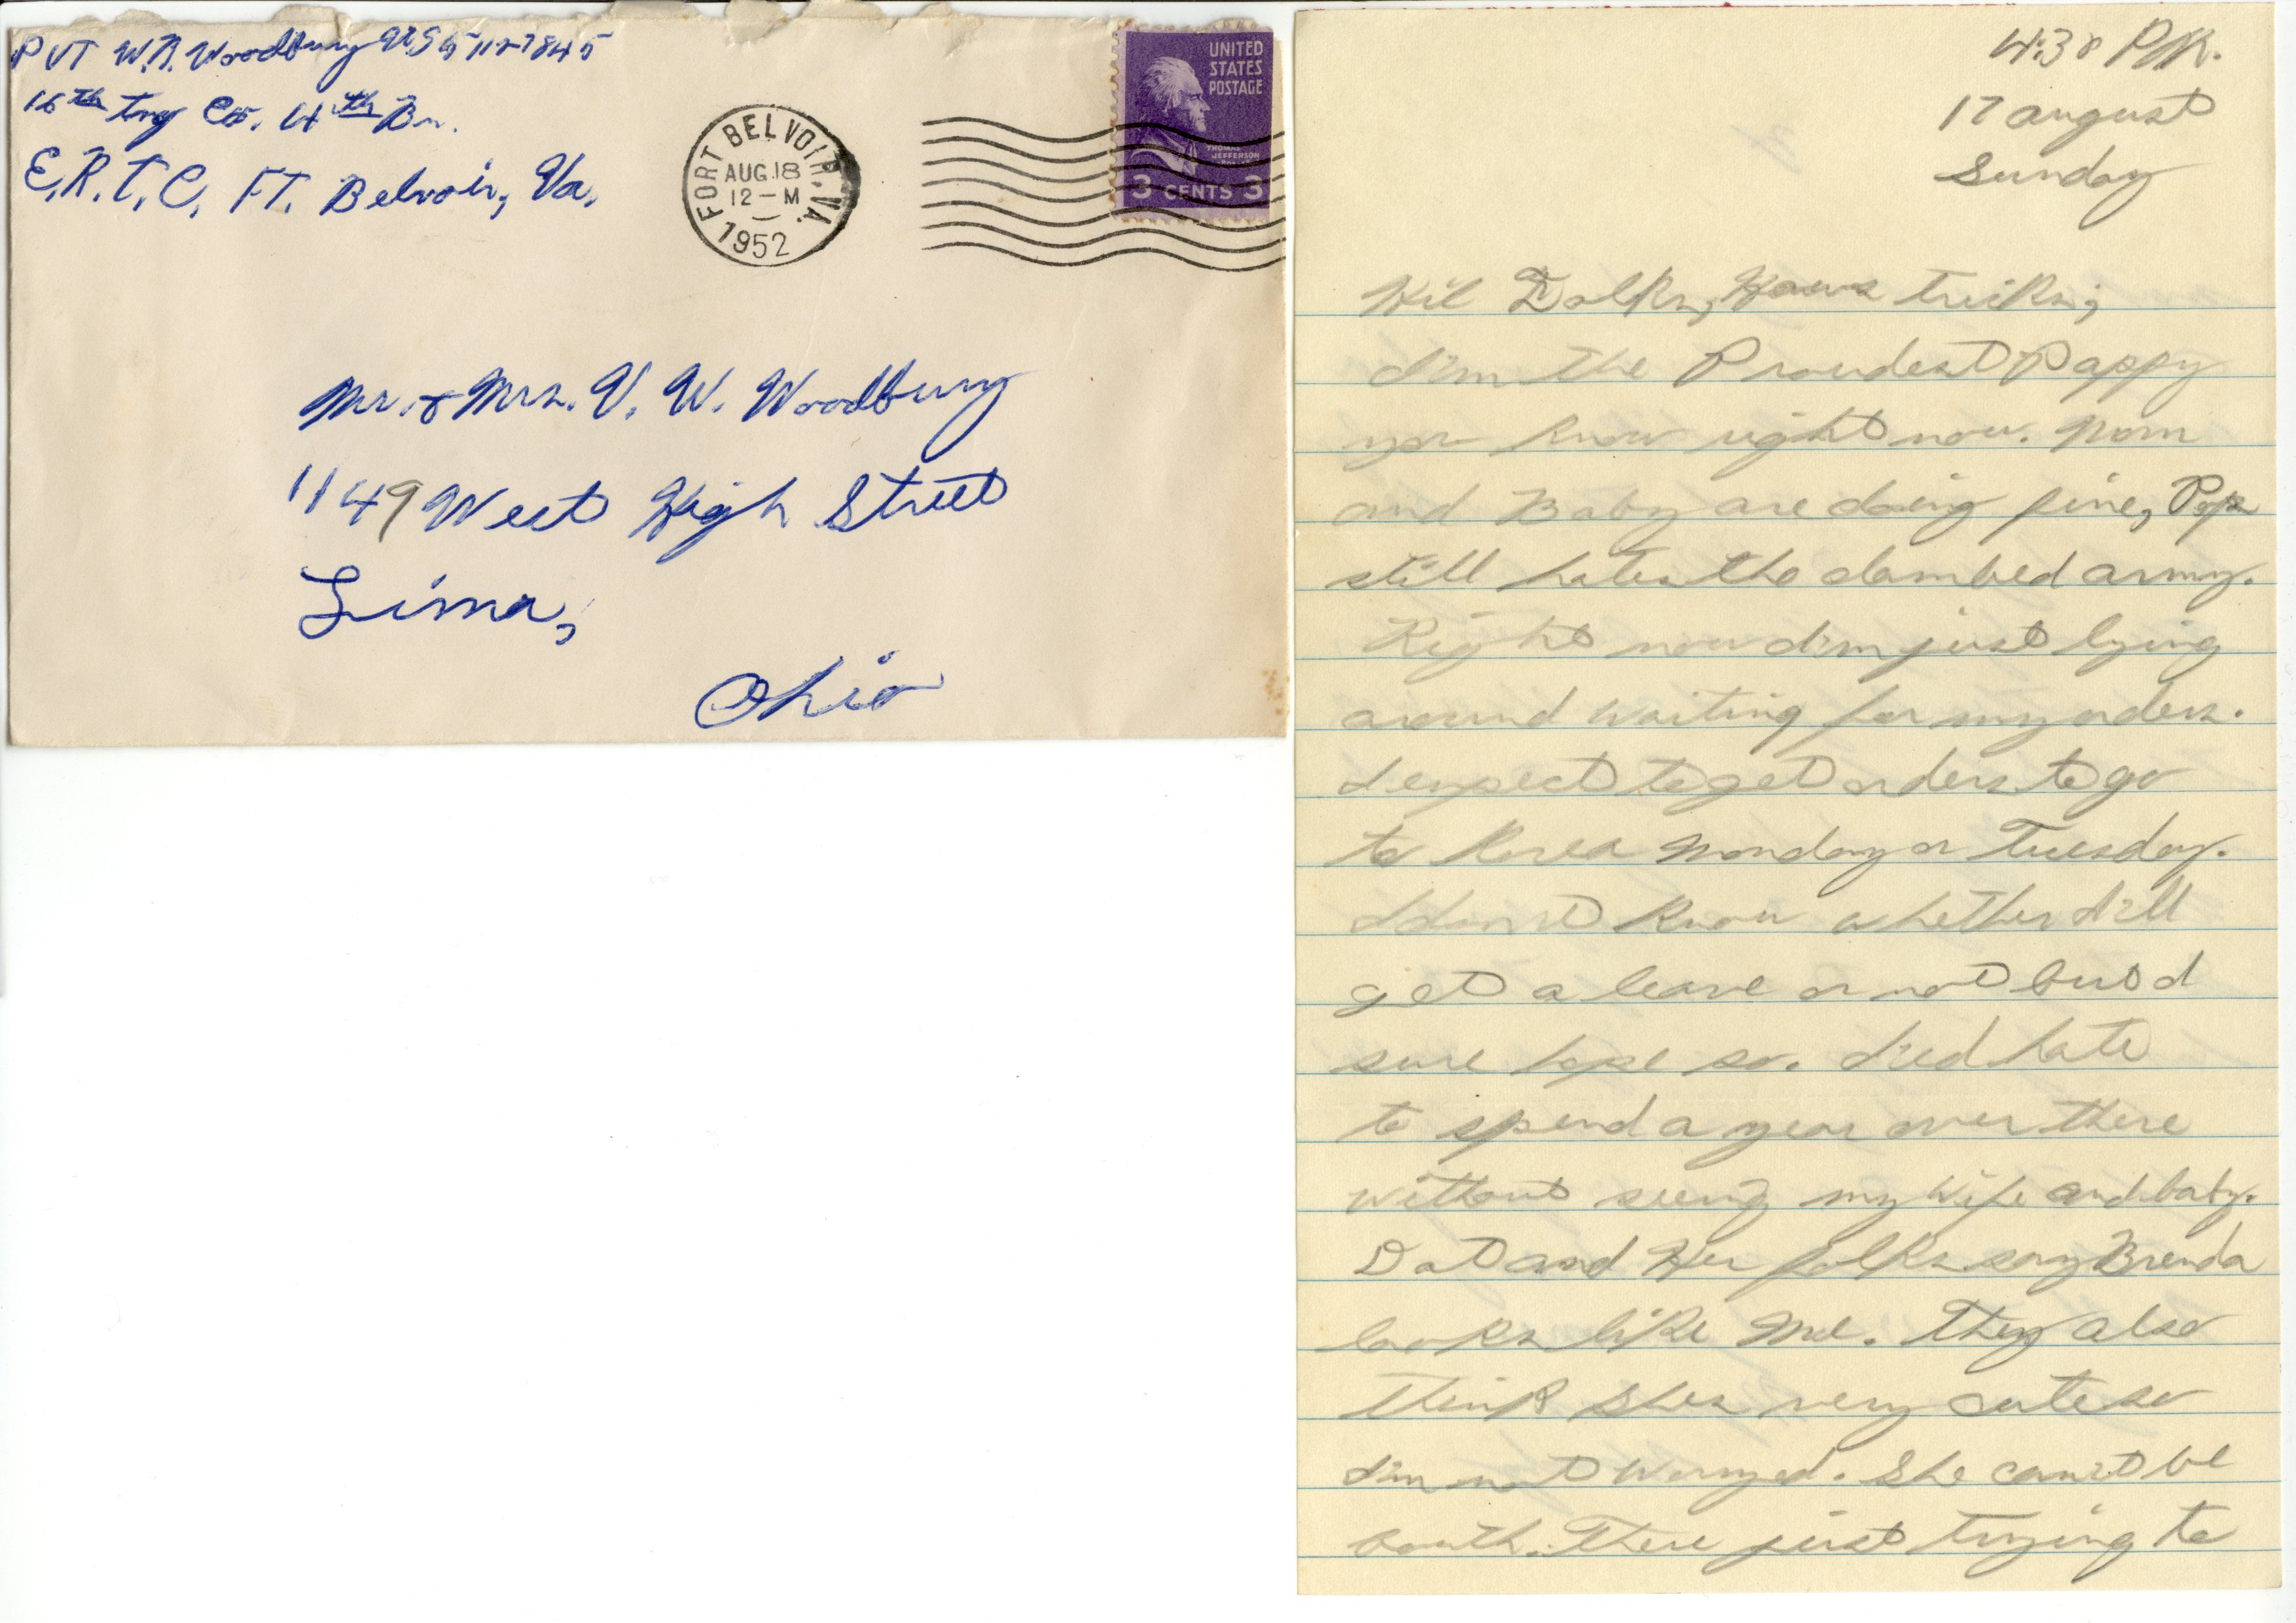 PVT W.A. Woodbury US 5
16th Trg Co. 4th Bn.
E.R.T.C. FT. Belvoir, Va.
FORT BELVOIR, VA.
AUG 18
12-M
1952
UNITED
STATES
POSTAGE
THOMAS
JEFFERSON
3 CENTS 3
Mr. & Mrs. V. W. Woodbury
1149 West High Street
Lima,
Ohio
4:38 P.M.
17 august
Sunday
Hi Folks, Hows tricks;
I'm the Proudest Pappy
you know right now. Mom
and Baby are doing fine, Pop
still hates the dambed army.
Right now I'm just lying
around waiting for my orders.
I expect to get orders to go
to Korea Monday or Tuesday.
I don't know whether I'll
get a leave or not but I
sure hope so. I'ed hate
to spend a year over there
without seeing my wife and baby.
Dot and Her folks say Brenda
looks like Me. They also
think shes very cute so
I'm not worryed. She can't be
both. There just trying to